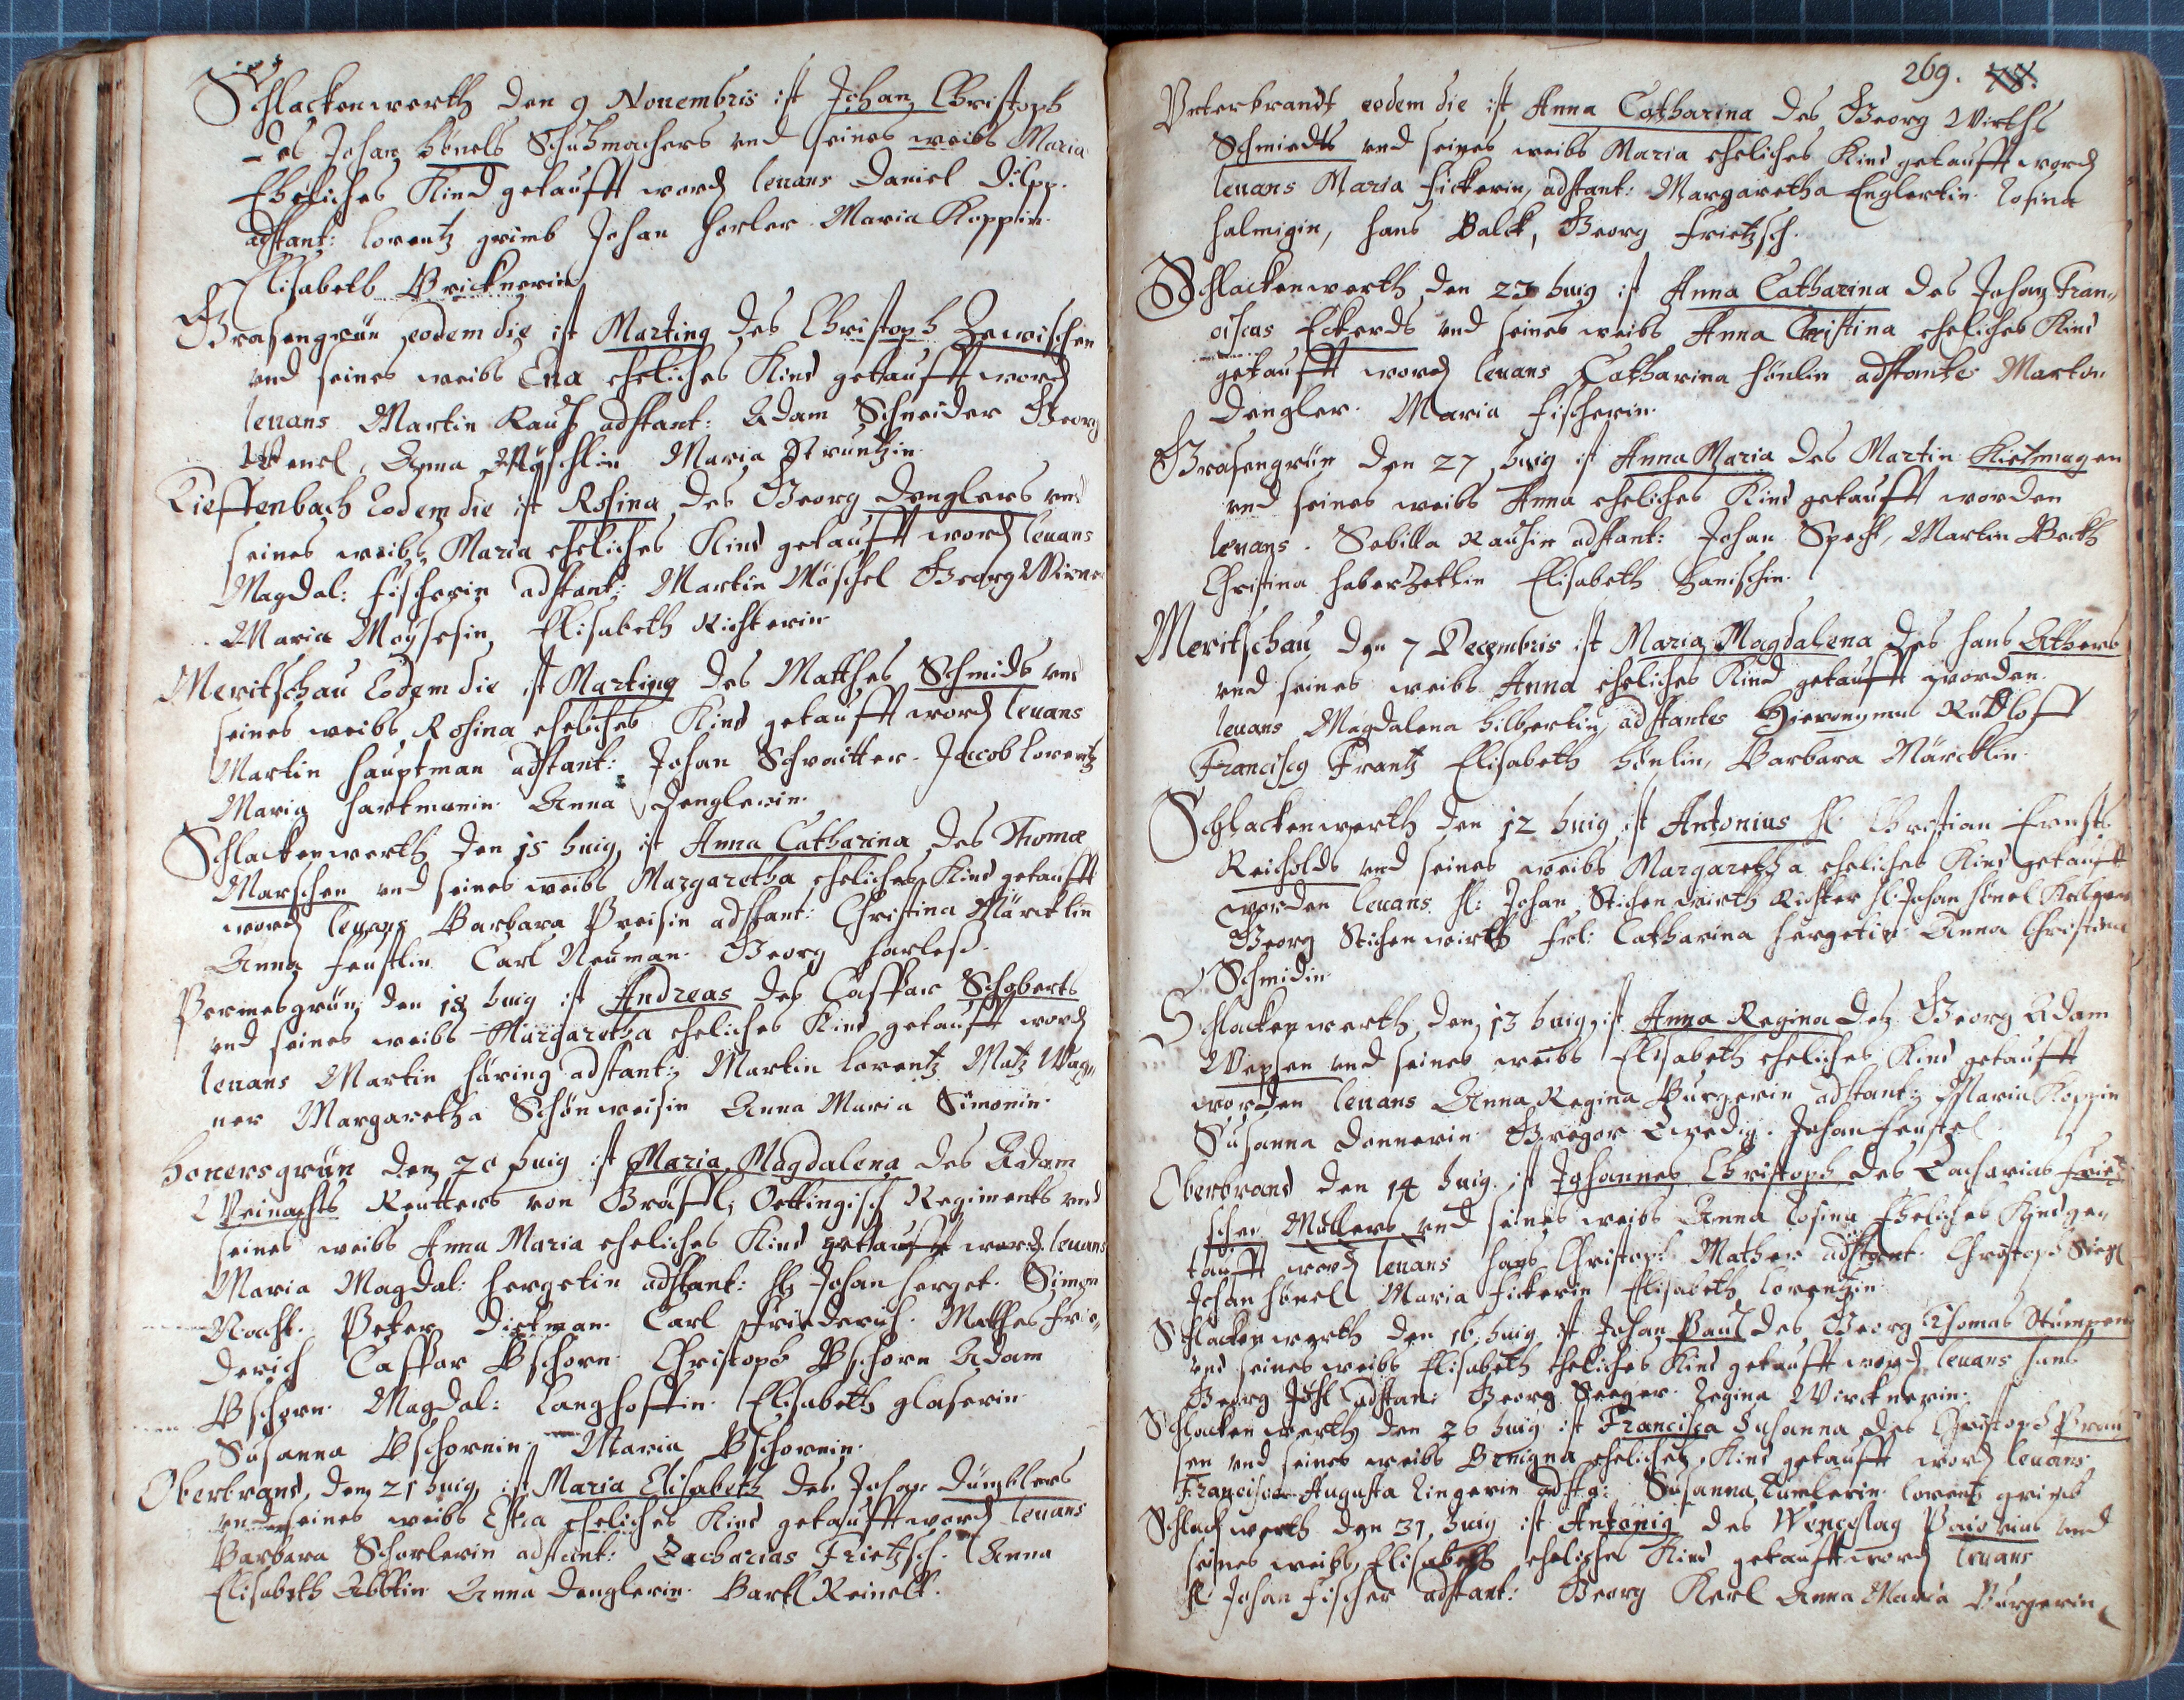 Schlackenwerth den 9 Novembris ist Johan Christoph
des Johan Hönels Schuhmachers und seines weibs Maria
Eheliches Kind getaufft word levans Daniel Dilpp.
adstant: Lorentz grimb Johan Horler Maria Koppin.
Elisabeth Bricknerin
Grasengrün eodem die ist Marting des Christoph Zewischen
vnd seines weibs Eva eheliches Kind getaufft word
levans Martin Rauh adstant: Adam Schneider Georg
Anna Möschlin Maria Struntzin
Tieffenbach Eodem die ist Rosina des Georg Denglers vnd
seines weibs Maria eheliches Kind getaufft word levans
Magdal: Fischerin adstant: Martin Möschel Georg
Maria Moysesin, Elisabeth Richterin
Meritschau Eodem die ist Marting des Matthes Schmids vnd
seines weibs Rosina eheliches Kind getaufft word levans
Martin Hauptman adstant: Johan Schnaitter. Jacob Lorentz
Maria Hartmanin Anna Denglerin.
Schlackenwerth den 15 huig ist Anna Catharina des Thomæ
Marschen vnd seines weibs Margaretha eheliches Kind getaufft
word levans Barbara Preisin adstant: Christina Märcklin
Anna Feustlin Carl Neuman. Georg Harles.
Permesgrün den 18 huig ist Andreas des Casspar Schoberts
vnd seines weibs Margaretha eheliches Kind getaufft word
levans Martin Häring adstant: Martin Lorentz Matz Wag„
ner Margaretha Schönweisin Anna Maria Simonin.
Honersgrün den 20 huig ist Maria Magdalena des Adam
Weinachts Reutters von Gräffl: Oettingisch Regiments vnd
seines weibs Anna Maria eheliches Kind getaufft word. levans
Maria Magdal: Hergetin adstant: H Johan Herget. Simon
Nacht. Peter Dietman. Carl Friederich. Mathes Frie„
derich Casspar Pschorn Christoph Pschorn Adam
Pschorn. Magdal: Langhoffin. Elisabeth glaserin
Susanna Pschornin. Maria Pschornin.
Oberbrand, den 21 huig ist Maria Elisabeth des Johan Dümblers
vnd seines weibs eheliches Kind getaufft word levans
Barbara Schorlerin adstant: Zacharias Frietzsch. Anna
Elisabeth Anna Denglerin. Bartl Reinelt.
269. 78.
Vnterbrandt eodem die ist Anna Catharina des Georg Wirths
Schmiedts vnd seines weibs Maria eheliches Kind getaufft word
levans Maria Fickerin, adstant: Margaretha Englertin. Rosina
Halmigin, Hans Balck, Georg Frietzsch.
Schlackenwerth den 23 huig ist Anna Catharina des Johan Fran„
ciscus Eckerds vnd seines weibs Anna Christina eheliches Kind
getaufft word levans Catharina Hönlin adstantes Martin
Dengler. Maria Fischerin.
Grasengrün den 27 huig ist Anna Maria des Martin Kietmagen
vnd seines weibs Anna eheliches Kind getaufft worden
levans. Sebilla Rauhin adstant: Johan Specht, Martin Beck
Christina Haberzetlin Elisabeth Hanischin.
Meritschau den 7 Decembris ist Maria Magdalena des Hans Athers
vnd seines weibs Anna eheliches Kind getaufft worden.
levans Magdalena Hilbertin adstantes Hieronymus Rudloff
Francisg Frantz Elisabeth Hönlin, Barbara Märcklin.
Schlackenwerth den 12 huig ist Antonius H. Christian Ernst
Reicholds vnd seines weibs Margaretha eheliches Kind getaufft
worden levans H: Johan Stichenwirth Richter H. Johan Hönel
Georg Stichenwirth Frl: Catharina Hergetin Anna Christina
Schmidin
Schlackenwerth, den 13 huig ist Anna Regina des Georg Adam
Wepsen vnd seines weibs Elisabeth eheliches Kind getaufft
worden levans Anna Regina Burgerin adstant: Maria Koppin
Susanna Donnerin Gregor Johan Feustel
Oberbrand den 14 huig ist Johannes Christoph des Zacharias Friet
schen Müllers vnd seines weibs Anna Rosina Eheliches Kind ge„
taufft word levans Hans Christoph Mather adstant: Christoph
Johan Hönel Maria Fickerin Elisabeth Lorentzin
Schlackenwerth den 16 huig ist Johan Paul des Georg Thomas Stumpen
vnd seines weibs Elisabeth eheliches Kind getaufft word levans Hans
Georg adstan: Georg Seeger Regina Wircknerin.
Schlackenwerth den 26 huig ist Francisca Susanna des Christoph Prau
sen vnd seines weibs Benigna eheliches Kind getaufft word levans
Francisca Augusta Zingerin adsta: Susanna Lorentz grimb
Schlackwerth den 31 huig ist Antonig des Wenceslag Paiorius vnd
seines weibs Elisabeth eheliches Kind getaufft word levans
H Johan Fischer adstant: Georg Kerl Anna Maria Burgerin